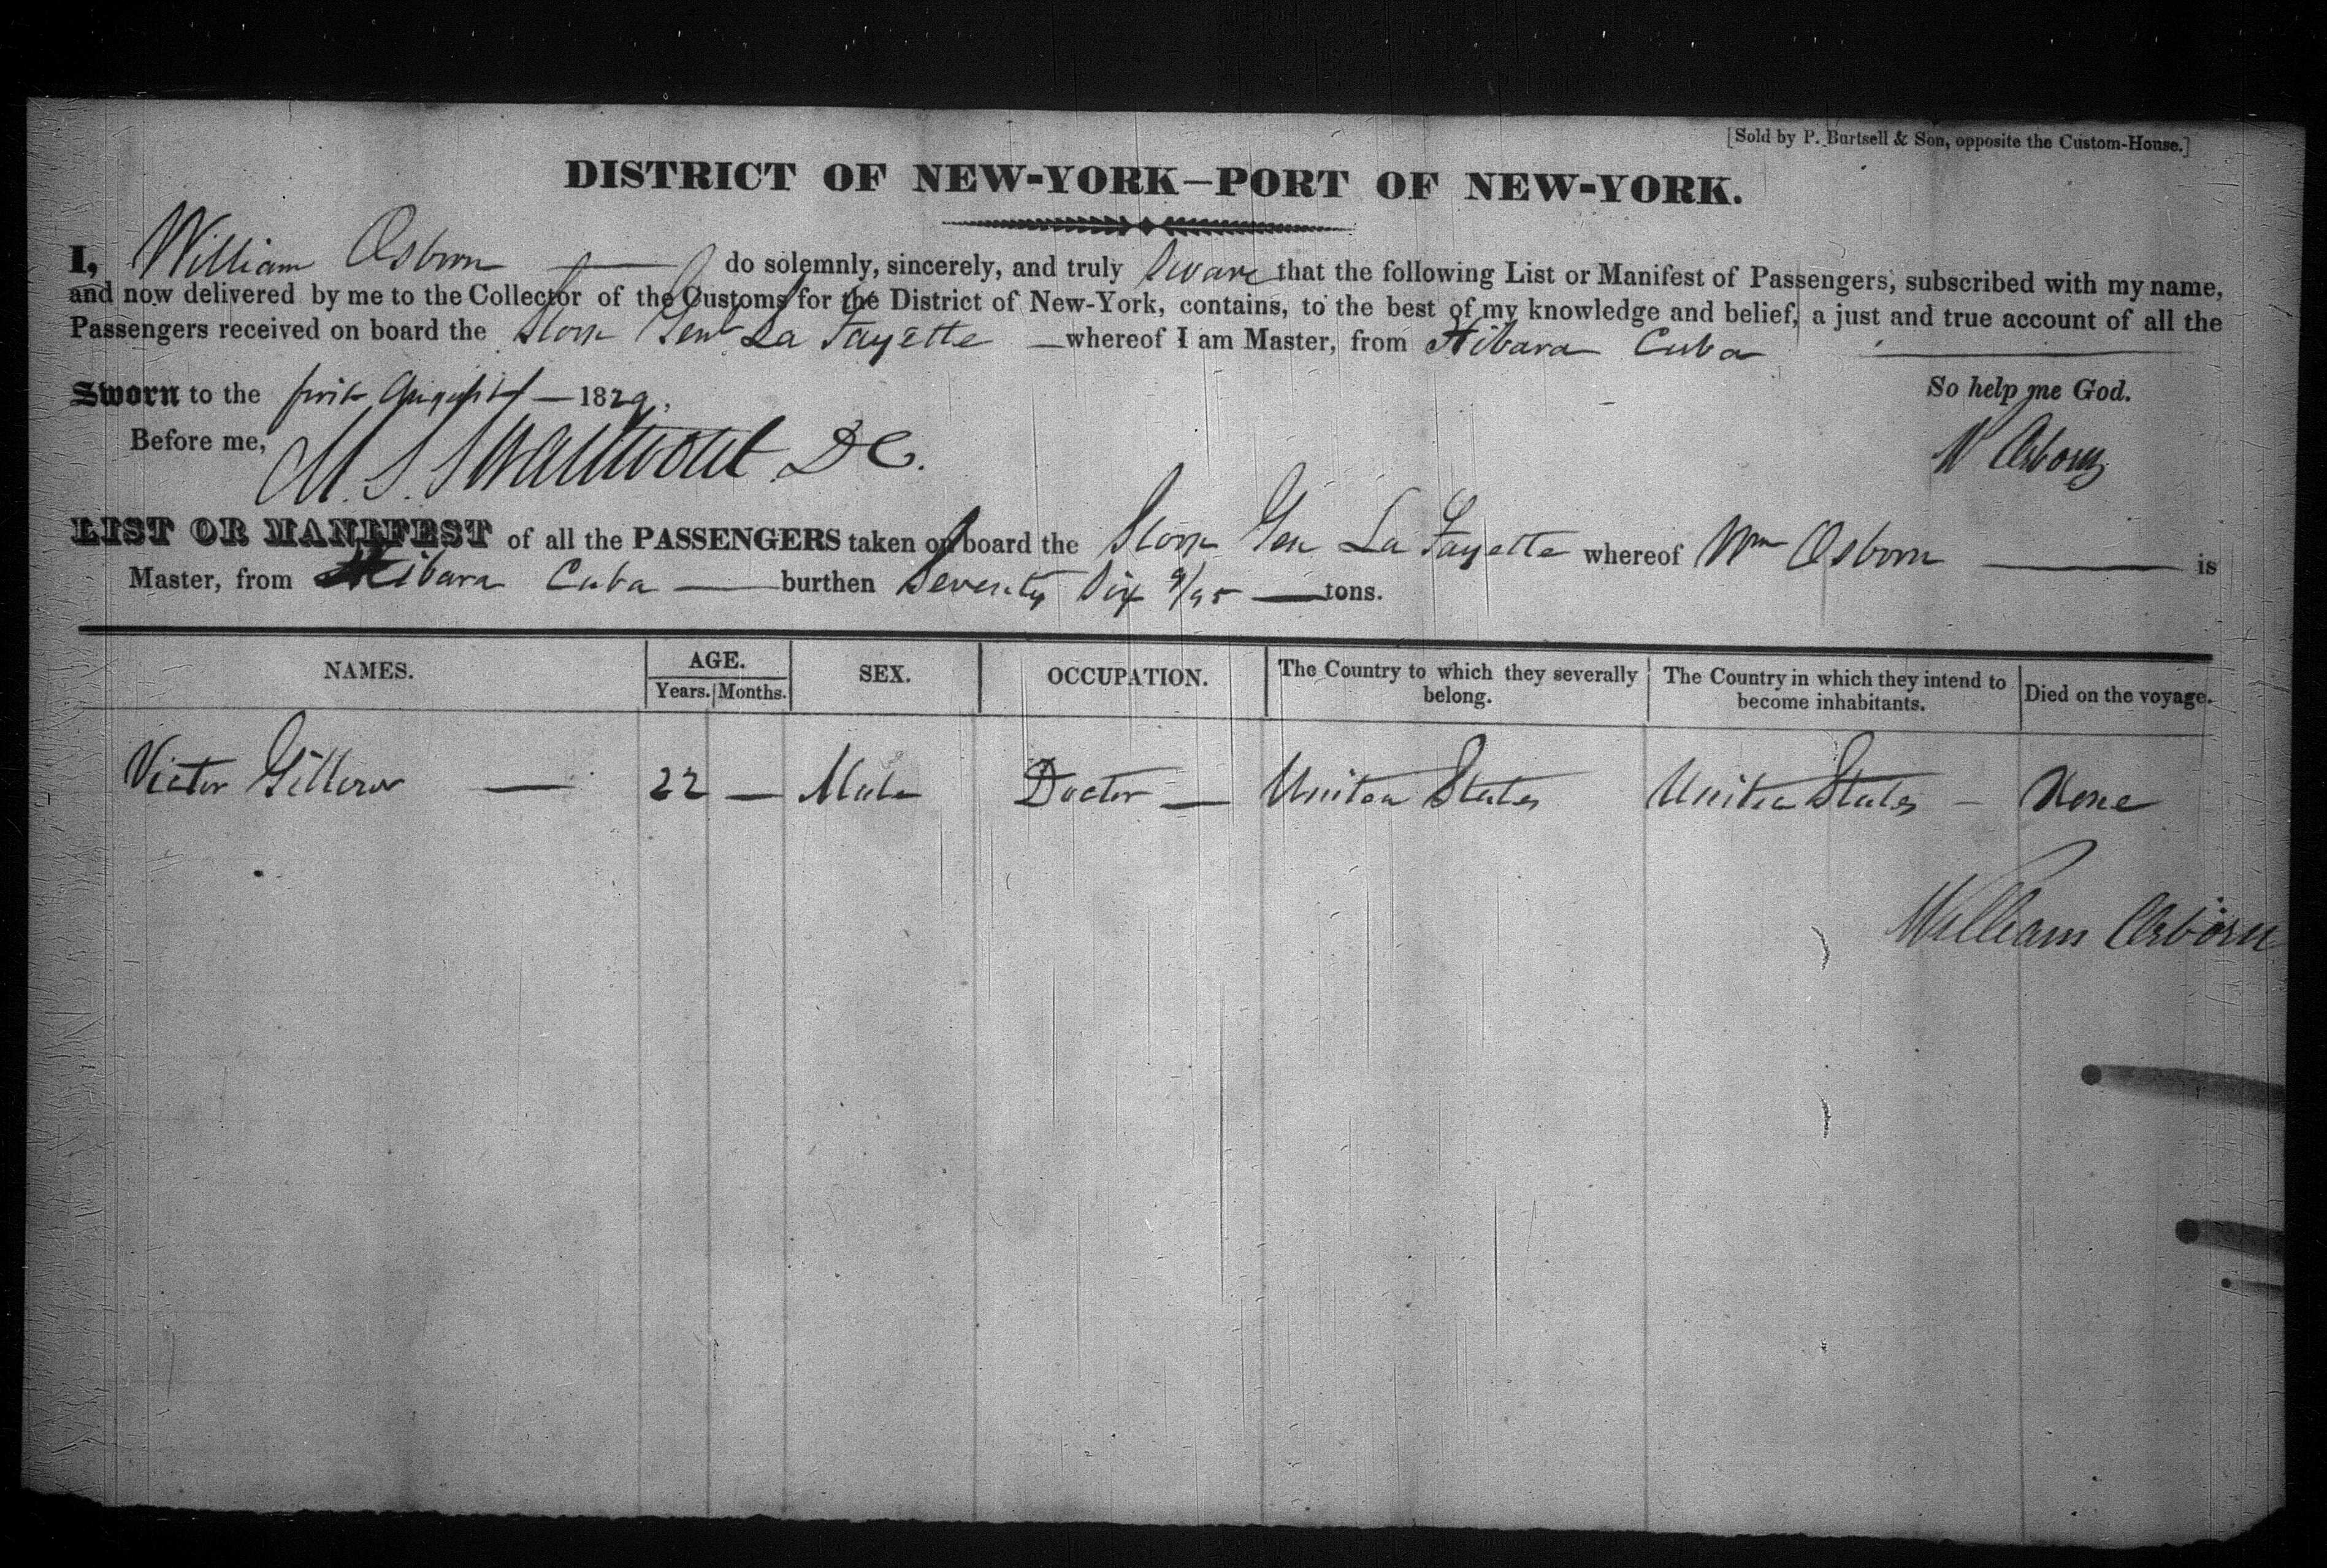 [Sold by P. Burtsell & Son, opposite the Custom-House.]
DISTRICT OF NEW-YORK—PORT OF NEW-YORK.
I, William Osborn — do solemnly, sincerely, and truly Sware that the following List or Manifest of Passengers, subscribed with my name,
and now delivered by me to the Collector of the Customs for the District of New-York, contains, to the best of my knowledge and belief, a just and true account of all the
Passengers received on board the Sloop Genl La Fayette — whereof I am Master, from Hibara Cuba
Sworn to the first August — 1829. So help me God.
Before me, M. S. Swartwout D C. W Osborn
LIST OR MANIFEST of all the PASSENGERS taken on board the Sloop Gen La Fayette whereof Wm Osborn — is
Master, from Hibara Cuba — burthen Seventy Six 9/95 — tons.
NAMES. AGE. SEX. OCCUPATION. The Country to which they severally belong. The Country in which they intend to become inhabitants. Died on the voyage.
Years. Months.
Victor — 22 — Male Doctor — United States United States — None
William Osborn